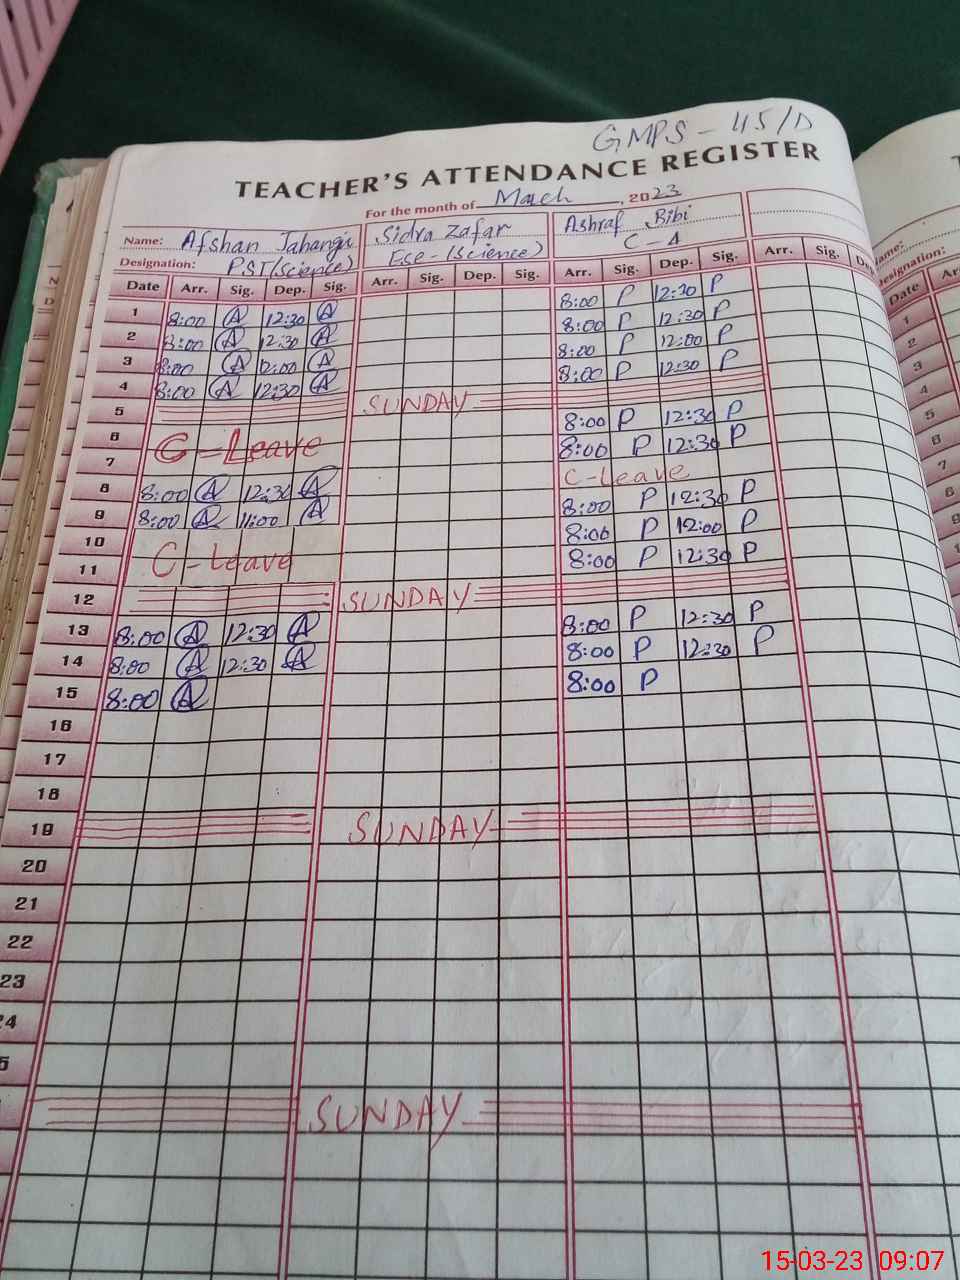 GMPS - 45/D
TEACHER'S ATTENDANCE REGISTER
For the month of March, 2023
Name: Afshan Jahangir Sidra Zafar Ashraf Bibi
Designation: PST(Science) Ese-(Science) C-4
Date Arr. Sig. Dep. Sig. Arr. Sig. Dep. Sig. Arr. Sig. Dep. Sig. Arr. Sig.
1 8:00 A 12:30 A 8:00 P 12:30 P
2 8:00 A 12:30 A 8:00 P 12:30 P
3 8:00 A 12:00 A 8:00 P 12:00 P
4 8:00 A 12:30 A 8:00 P 12:30 P
5 SUNDAY
6 C-Leave 8:00 P 12:30 P
7 8:00 P 12:30 P
8 8:00 A 12:30 A C-Leave
9 8:00 A 11:00 A 8:00 P 12:30 P
10 C-Leave 8:00 P 12:00 P
11 8:00 P 12:30 P
12 SUNDAY
13 8:00 A 12:30 A 8:00 P 12:30 P
14 8:00 A 12:30 A 8:00 P 12:30 P
15 8:00 A 8:00 P
16
17
18
19 SUNDAY
20
21
22
23
SUNDAY
15-03-23 09:07